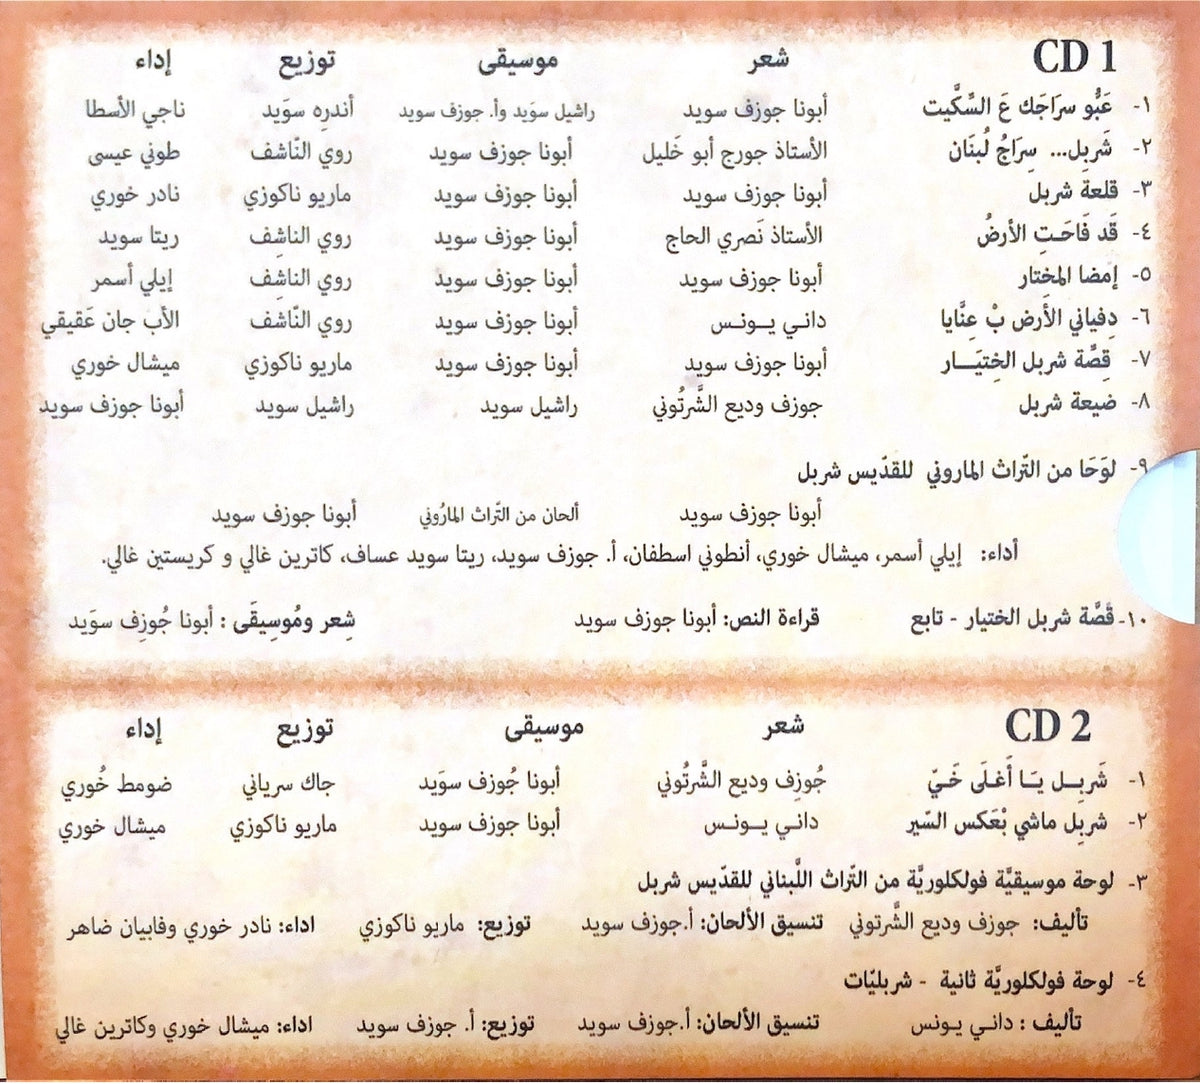 CD 1 شعر موسيقى توزيع إداء
١- عَبُّو سرَاجَك عَ السِّكَّيت أبونا جوزف سويد راشيل سوَيد وأ. جوزف سويد أندره سوَيد ناجي الأسطا
٢- شَربِل... سِرَاجُ لُبنَان الأستاذ جورج أبو خَليل أبونا جوزف سويد روي النّاشف طوني عيسى
٣- قلعة شربل أبونا جوزف سويد أبونا جوزف سويد ماريو ناكوزي نادر خوري
٤- قَد فَاحَتِ الأرضُ الأستاذ نَصري الحاج أبونا جوزف سويد روي الناشِف ريتا سويد
٥- إمضا المختار أبونا جوزف سويد أبونا جوزف سويد روي الناشِف إيلي أسمر
٦- دِفياني الأَرض بْ عِنَّايا داني يونس أبونا جوزف سويد روي النّاشف الأب جان عَقيقي
٧- قِصَّة شربل الخِتيَار أبونا جوزف سويد أبونا جوزف سويد ماريو ناكوزي ميشال خوري
٨- ضَيعة شربل جوزف وديع الشَّرتُوني راشيل سويد راشيل سويد أبونا جوزف سويد
٩- لوَحَا من التّراث الماروني للقدّيس شربل
أبونا جوزف سويد ألحان من التّراث المارُوني أبونا جوزف سويد
أداء: إيلي أسمر، ميشال خوري، أنطوني اسطفان، أ. جوزف سويد، ريتا سويد عساف، كاترين غالي و كريستين غالي.
١٠- قْصَّة شربل الختيار - تابع قراءة النص: أبونا جوزف سويد شِعر ومُوسِيقَى : أبونا جُوزِف سوَيد
CD 2 شعر موسيقى توزيع إداء
١- شَربِل يَا أَغلَى خَيّ جُوزِف وديع الشَّرتُوني أبونا جُوزف سوَيد جاك سرياني ضومط خُوري
٢- شربِل ماشي بْعَكس السّير داني يونس أبونا جوزف سويد ماريو ناكوزي ميشال خوري
٣- لوحة موسيقيَّة فولكلوريَّة من التّراث اللَّبناني للقدّيس شربل
تأليف: جوزف وديع الشَّرتوني تنسيق الألحان: أ.جوزف سويد توزيع: ماريو ناكوزي اداء: نادر خوري وفابيان ضاهر
٤- لوحة فولكلوريَّة ثانية - شربليّات
تأليف : داني يونس تنسيق الألحان: أ.جوزف سويد توزيع: أ. جوزف سويد اداء: ميشال خوري وكاترين غالي